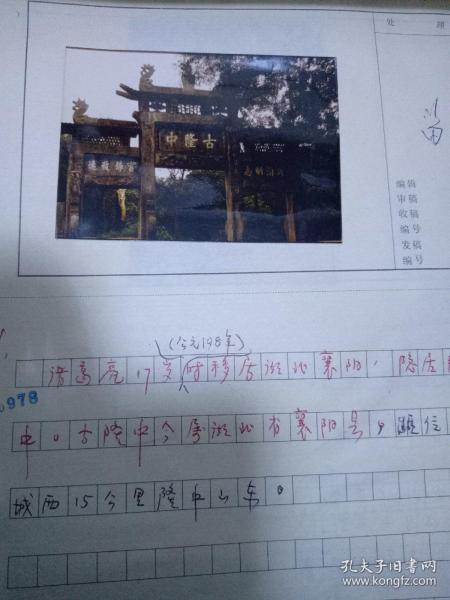 处 理
古隆中
淡泊明志
宁静致远
编辑
审稿
收稿
编号
发稿
编号
(公元198年)
诸葛亮17岁时移居湖北襄阳,隐居
0978
中。古隆中今属湖北省襄阳县,距
城西15公里隆中山东。
孔夫子旧书网
www.kongfz.com